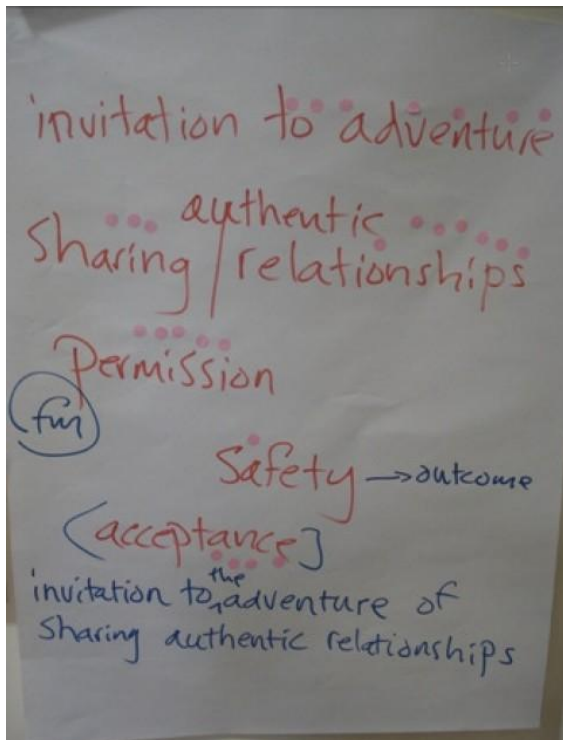 invitation to adventure
authentic
sharing / relationships
permission
fun
Safety → outcome
(acceptance]
the
invitation to ‸ adventure of
sharing authentic relationships